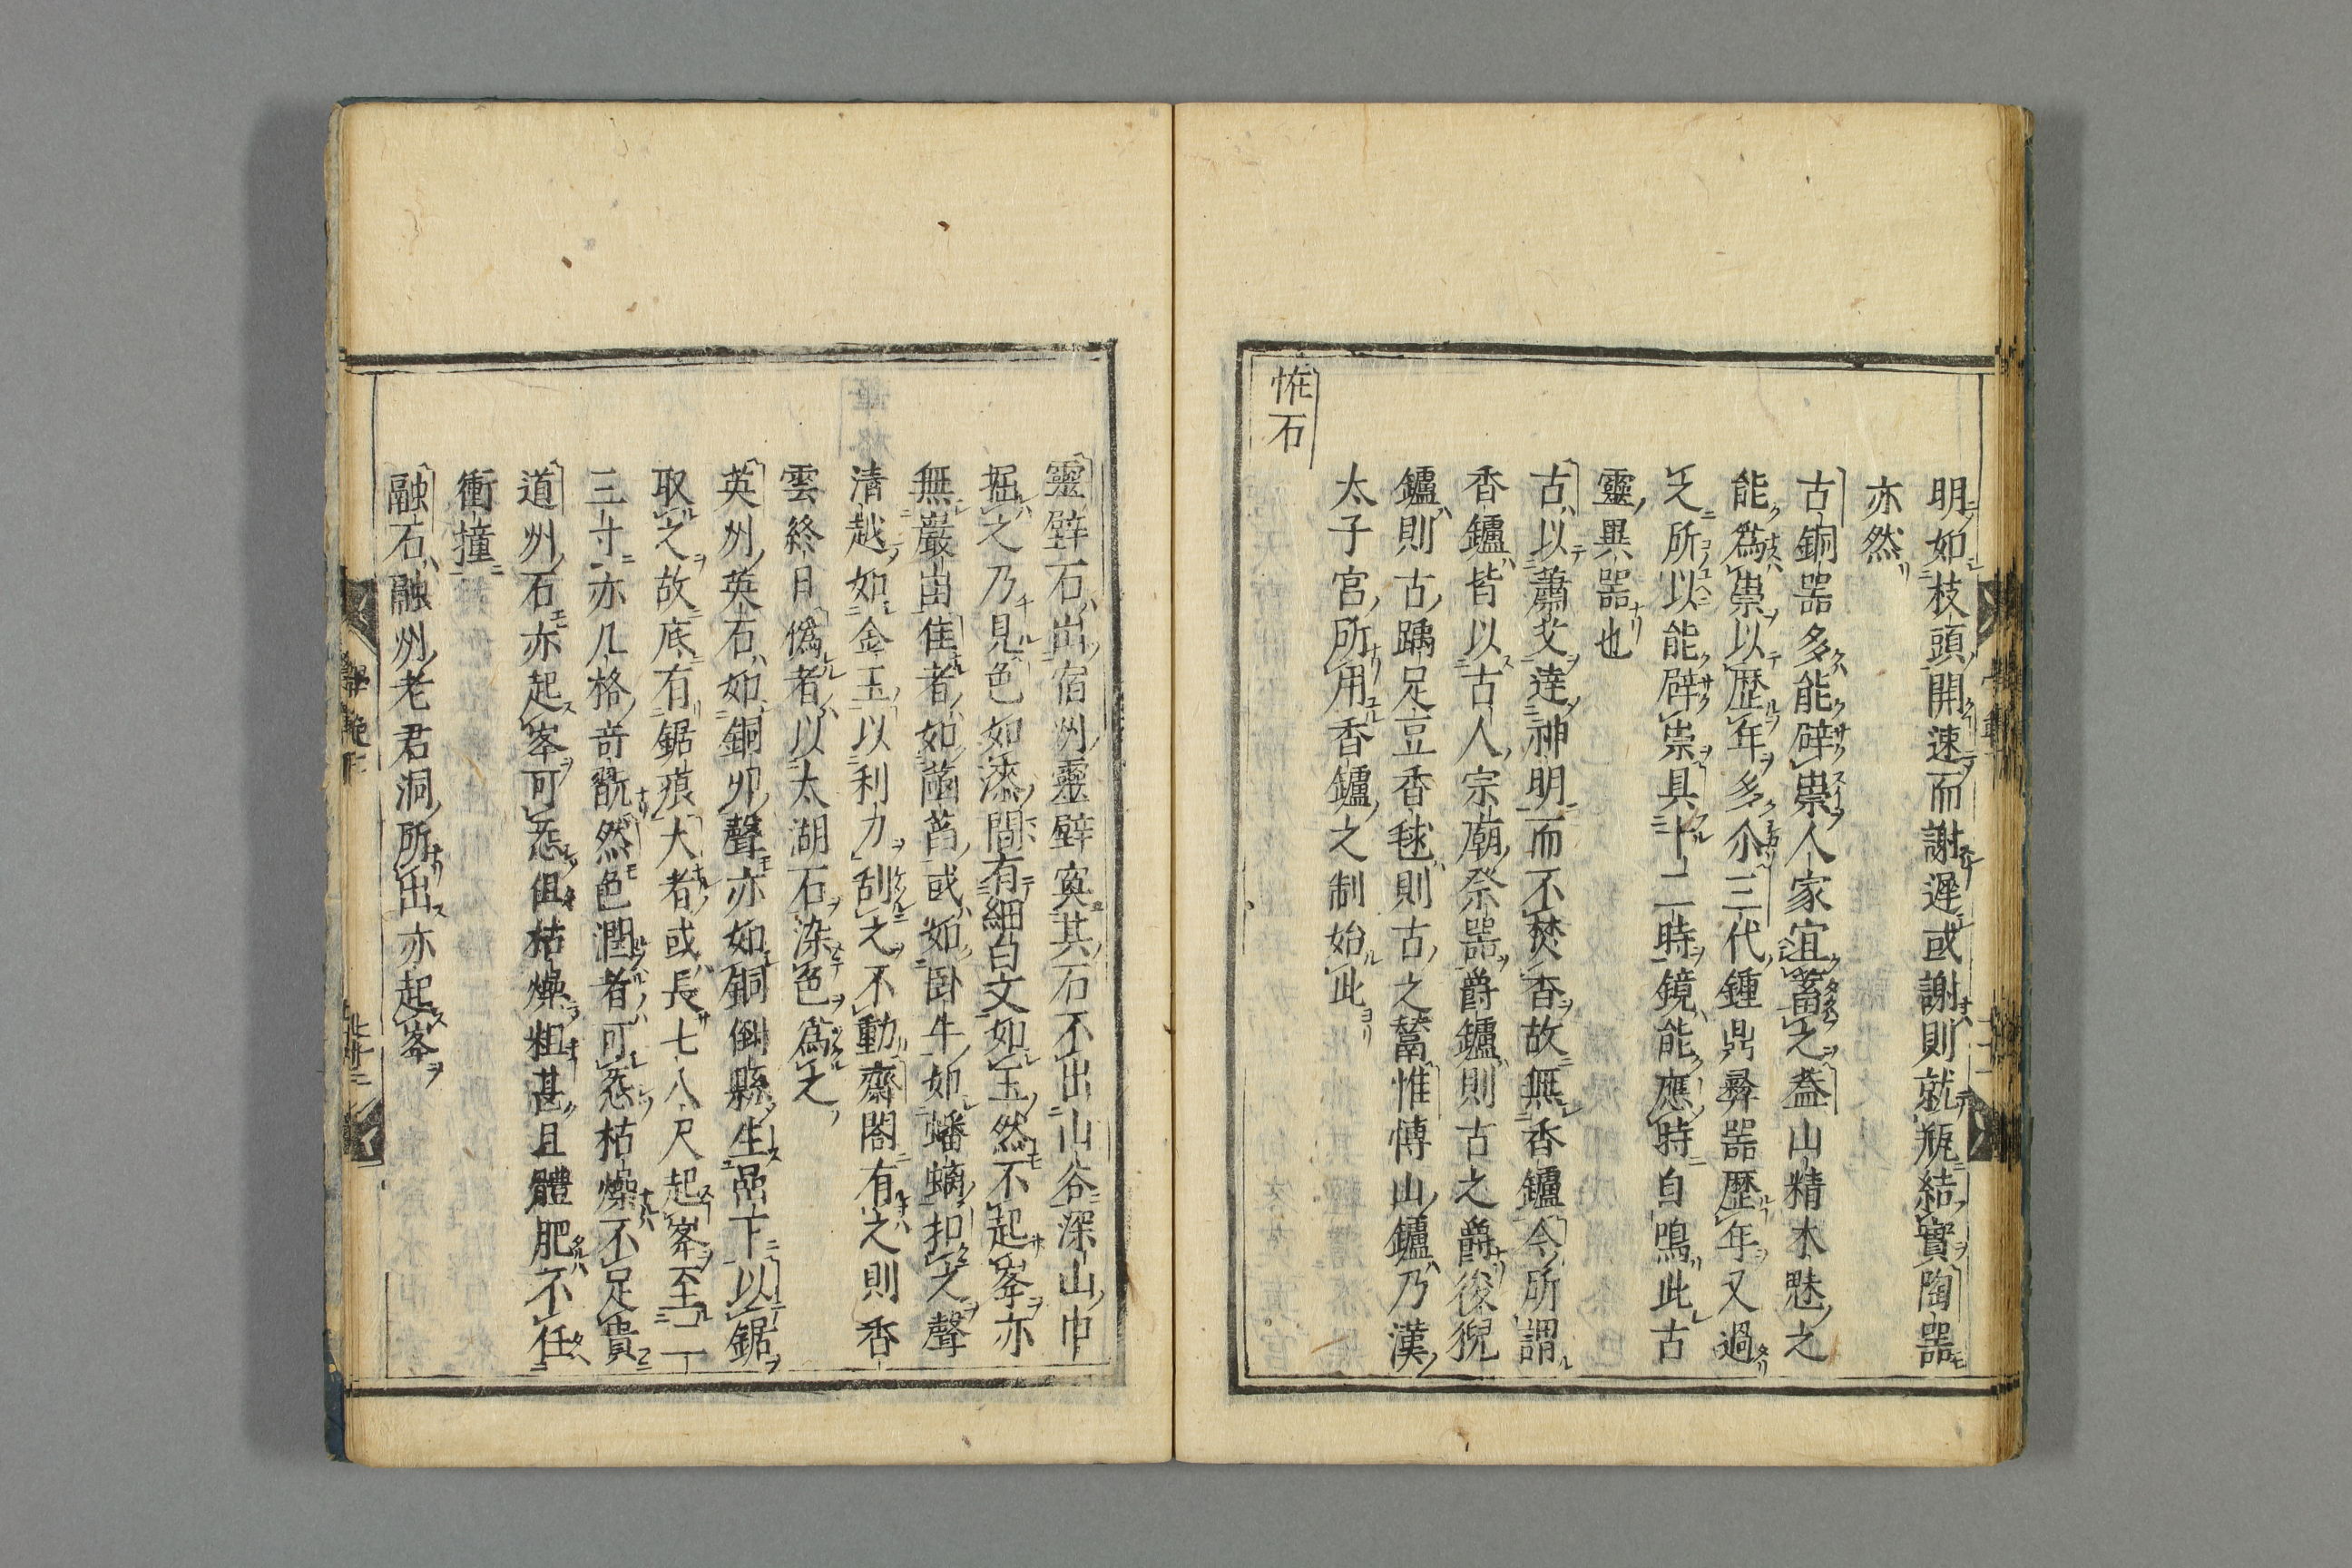 明如枝頭開速而謝遲或謝則就瓶結實陶器
亦然
古銅器多能辟祟人家宜蓄之蓋山精木魅之
能爲祟以歷年多尒三代鍾鼎彝器歷年又過
之所以能辟祟具十二時鏡能應時自鳴此古
靈異器也
古以蕭艾達神明而不焚香故無香鑪今所謂
香鑪皆以古人宗廟祭器爵鑪則古之爵狻猊
鑪則古踽足豆香毬則古之鬵惟博山鑪乃漢
太子宮所用香鑪之制始此
恠石
靈壁石出宿州靈壁寘其石不出山谷深山中
掘之乃見色如漆間有細白文如玉然不起峯亦
無巖岫隹者如菡萏或如卧牛如蟠螭扣之聲
清越如金玉以利力刮之不動齋閣有之則香
雲終日偽者以太湖石染色爲之
英州英石如銅卯聲亦如銅倒縣生嵒下以鋸
取之故底有鋸痕大者或長七八尺起峯至二
三寸亦几格竒翫然色潤者可愛枯燥不足貴
道州石亦起峯可愛但枯燥粗甚且體肥不任
衝撞
融石融州老君洞所出亦起峯